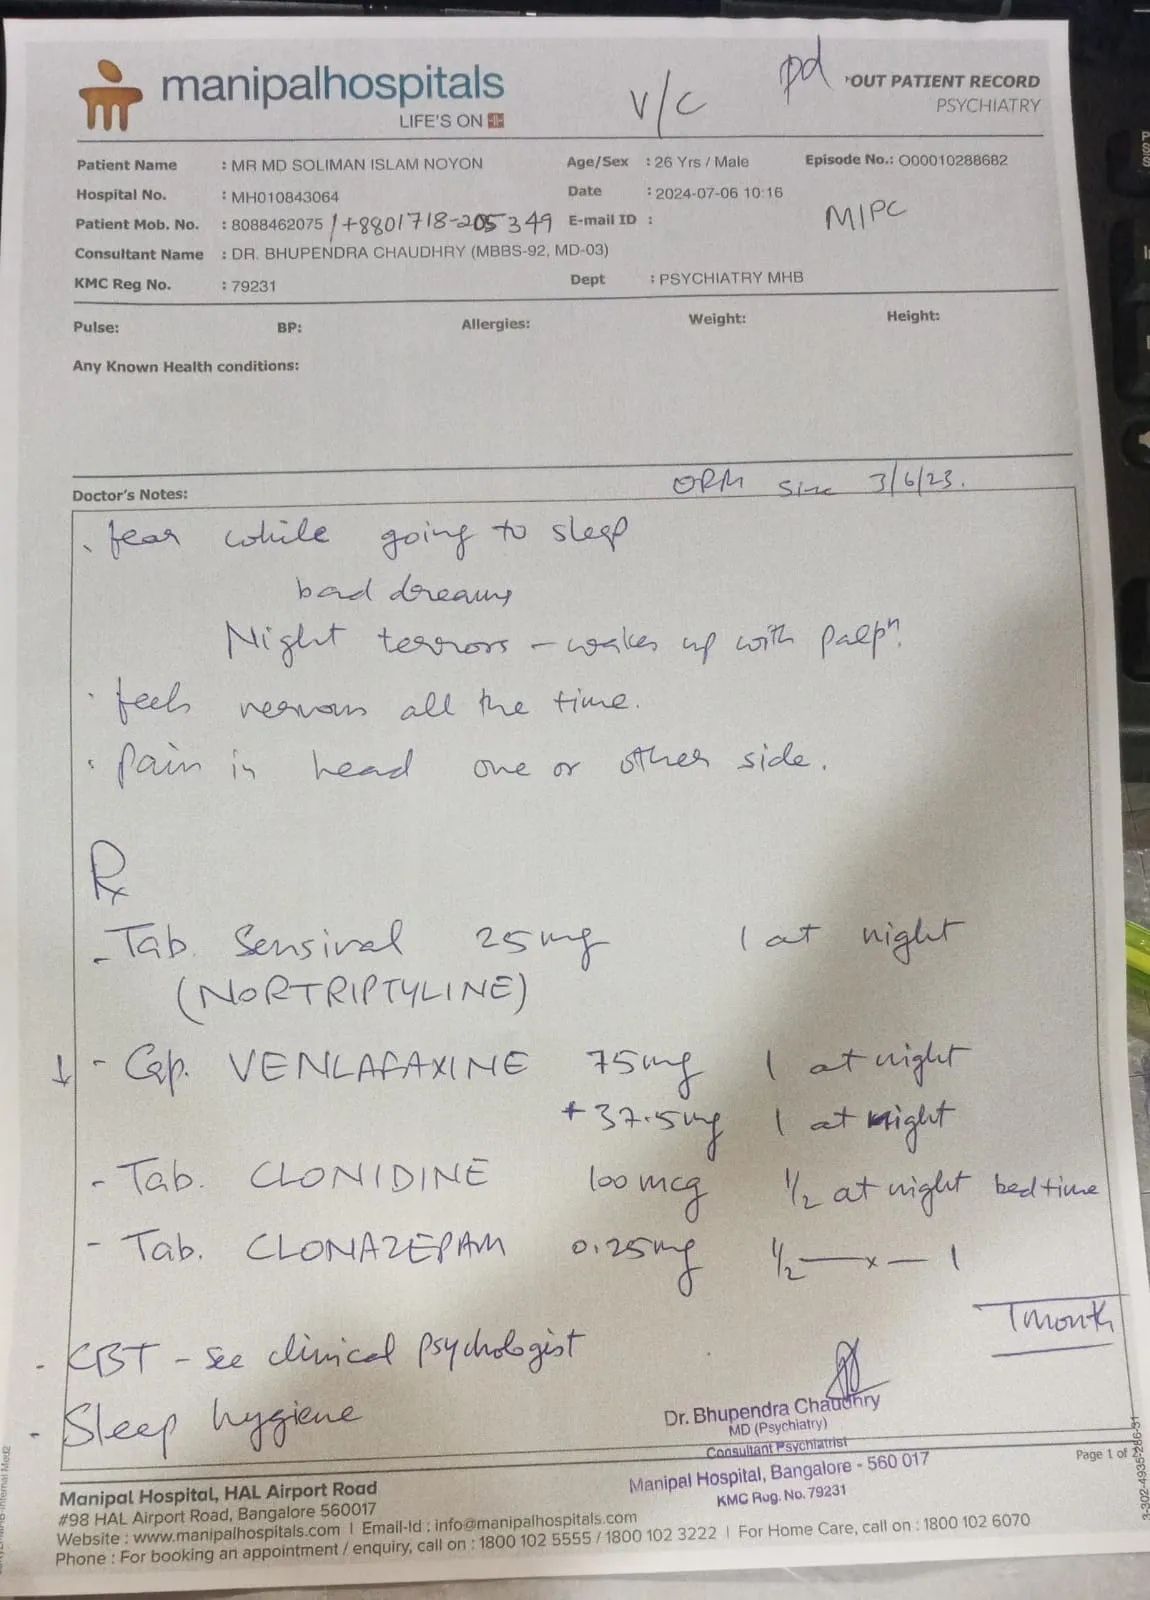 manipalhospitals
LIFE'S ON
V/C
pd
OUT PATIENT RECORD
PSYCHIATRY
Patient Name : MR MD SOLIMAN ISLAM NOYON Age/Sex : 26 Yrs / Male Episode No.: O00010288682
Hospital No. : MH010843064 Date : 2024-07-06 10:16
Patient Mob. No. : 8088462075 / +8801718-205349 E-mail ID :
MIPC
Consultant Name : DR. BHUPENDRA CHAUDHRY (MBBS-92, MD-03)
KMC Reg No. : 79231 Dept : PSYCHIATRY MHB
Pulse: BP: Allergies: Weight: Height:
Any Known Health conditions:
Doctor's Notes: 3/6/23.
fear while going to sleep
bad dreams
Night terrors - wakes up with palpn.
feels nervous all the time.
Pain in head one or other side.
Rx
- Tab. Sensival 25mg 1 at night
(NORTRIPTYLINE)
↓ - Cap. VENLAFAXINE 75mg 1 at night
+ 37.5mg 1 at night
- Tab. CLONIDINE 100 mcg 1/2 at night bedtime
- Tab. CLONAZEPAM 0.25mg 1/2 —x— 1
1 month
- CBT - see clinical psychologist
- Sleep hygiene
Dr. Bhupendra Chaudhry
MD (Psychiatry)
Consultant Psychiatrist
Manipal Hospital, Bangalore - 560 017
KMC Rug. No. 79231
Page 1 of
Manipal Hospital, HAL Airport Road
#98 HAL Airport Road, Bangalore 560017
Website : www.manipalhospitals.com | Email-Id : info@manipalhospitals.com
Phone : For booking an appointment / enquiry, call on : 1800 102 5555 / 1800 102 3222 | For Home Care, call on : 1800 102 6070